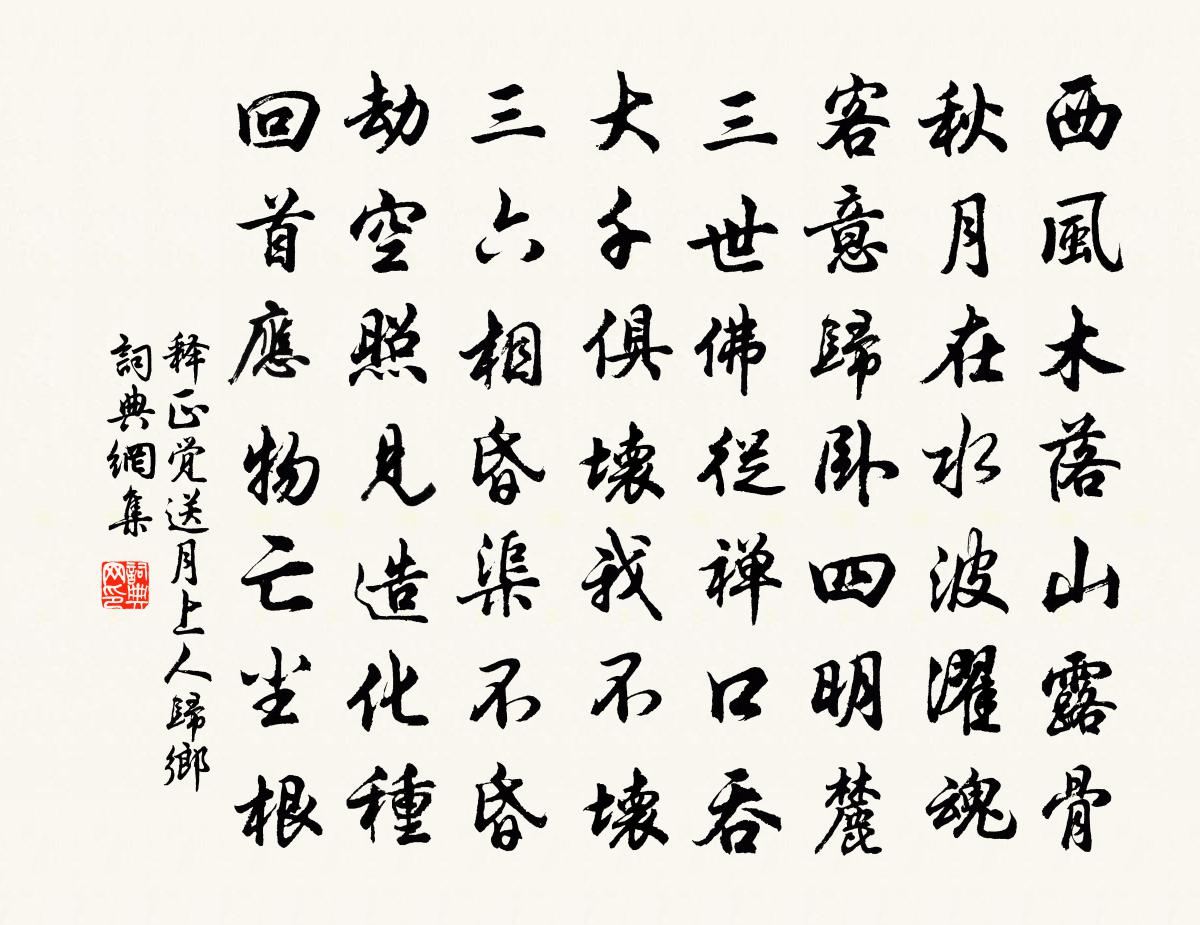 西風木落山露骨
秋月在水波濯魂
客意歸卧四明麓
三世佛從禅口吞
大千俱壞我不壞
三六相昏渠不昏
劫空照見造化種
回首應物亡尘根
释正觉送月上人歸鄉
詞典網集
詞典网印